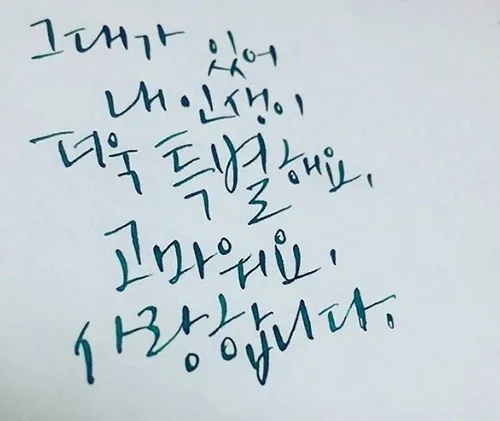 그대가 있어
내 인생이
더욱 특별해요.
고마워요.
사랑합니다.